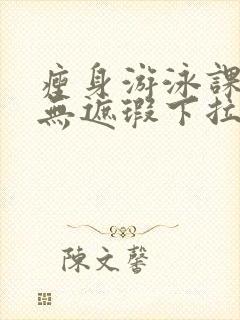 瘦身游泳課
無遮瑕下拉
陳文馨